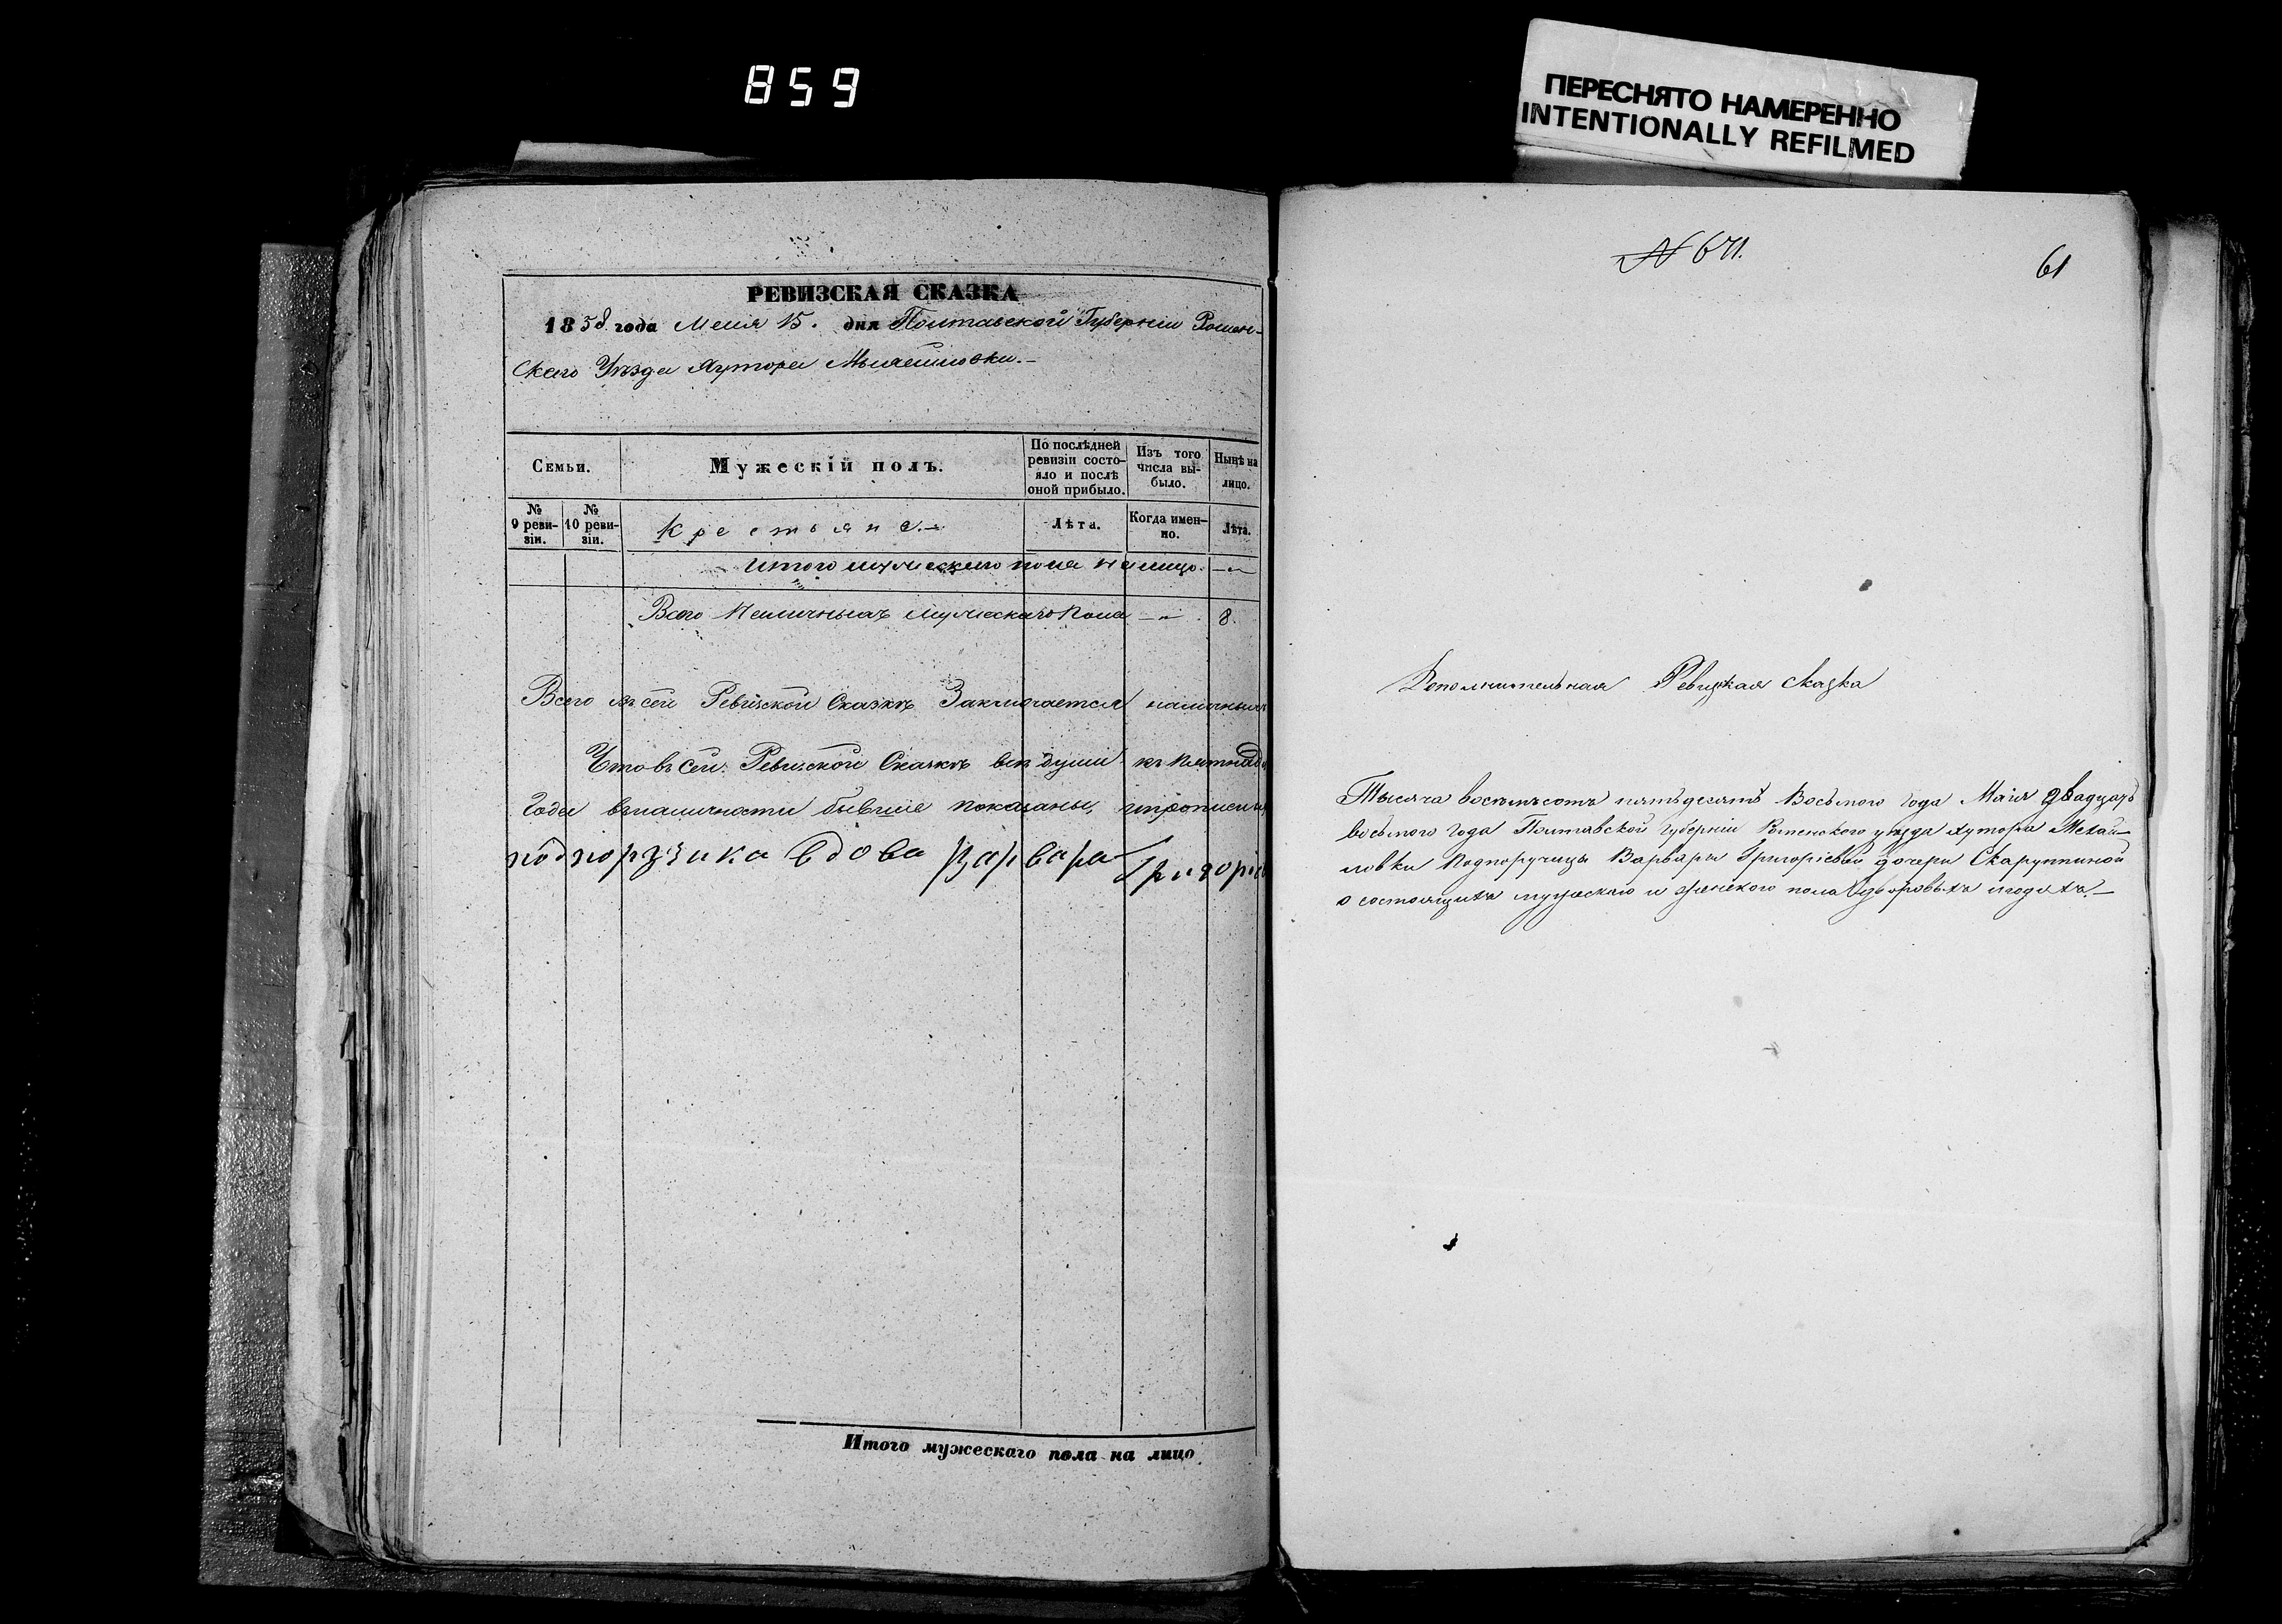 859
ПЕРЕСНЯТО НАМЕРЕННО
INTENTIONALLY REFILMED
РЕВИЗСКАЯ СКАЗКА
1858 года Маия 15. дня Полтавской Губерніи Ромен-
скаго Уѣзда Хутора
Семьи.
Мужескій полъ.
По послѣдней ревизіи состо-яло и послѣ оной прибыло.
Изъ того числа вы-было.
Нынѣ на лицо.
№ 9 реви-зіи.
№ 10 реви-зіи.
Крестьяне.-
Лѣта.
Когда имен-но.
Лѣта.
Итого мужескаго пола на лицо. —„—
Всего Наличныхъ мужескаго Пола —„— 8.
Всего въ сей Ревизской Сказкѣ Заключается наличныхъ
Что въ сей Ревизской Сказкѣ всѣ души къ
Года въ наличности бывшие показаны,
вдова Варвара
Итого мужескаго пола на лицо
№ 671.
61
Дополнительная Ревизкая сказка
Тысяча восемьсотъ пятьдесятъ Восьмого года Маія двадцать
восьмого года Полтавской губерніи Роменского уѣзда хутора Михай-
ловки Подпоручицы Варвары Григоріевой дочери
о состоящихъ мужескаго и женского пола дворовыхъ людяхъ.—